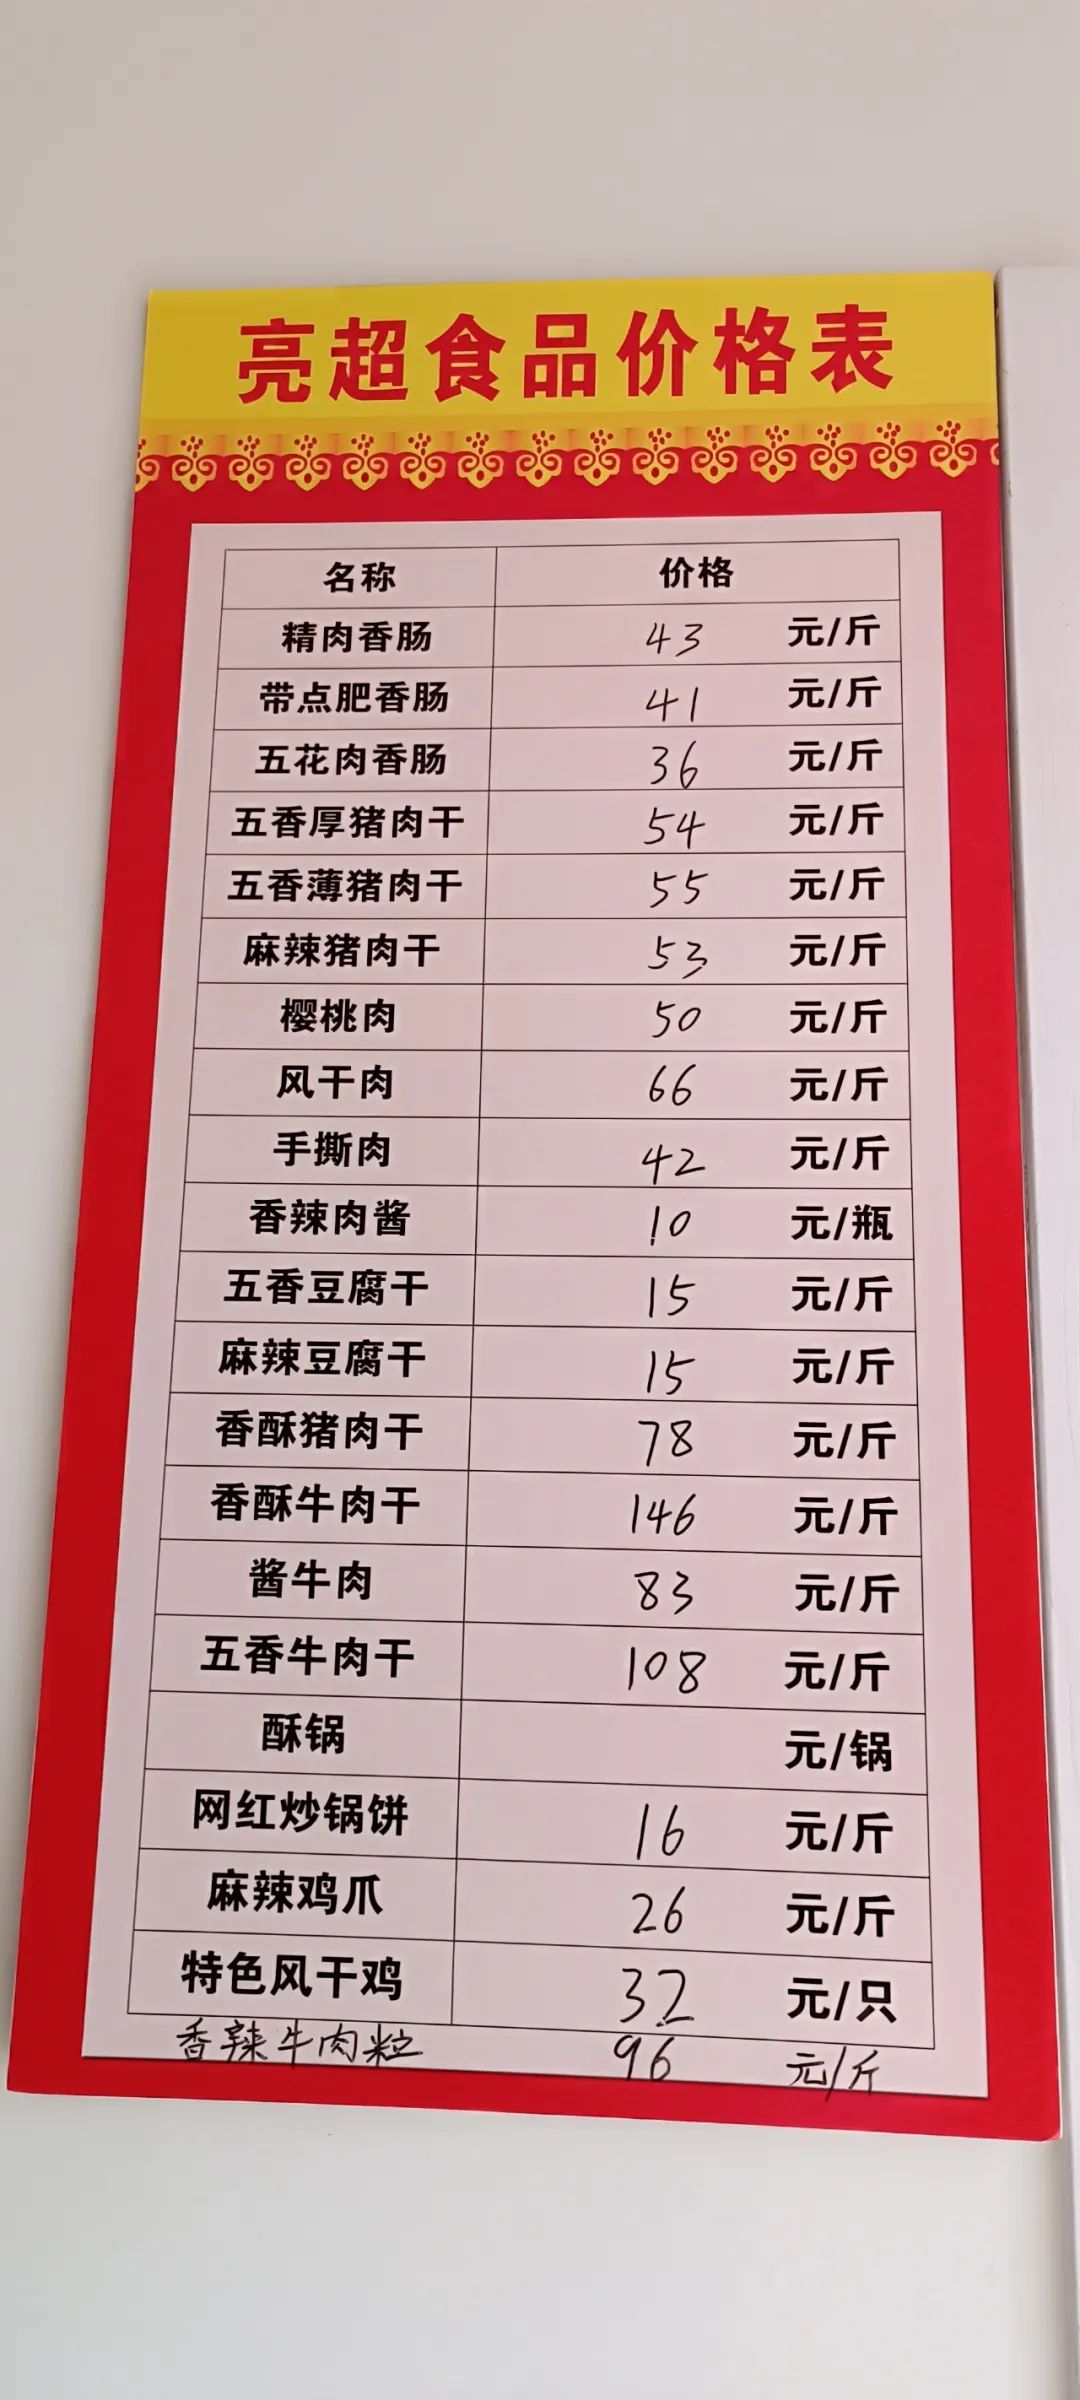 亮超食品价格表
名称 价格
精肉香肠 43 元/斤
带点肥香肠 41 元/斤
五花肉香肠 36 元/斤
五香厚猪肉干 54 元/斤
五香薄猪肉干 55 元/斤
麻辣猪肉干 53 元/斤
樱桃肉 50 元/斤
风干肉 66 元/斤
手撕肉 42 元/斤
香辣肉酱 10 元/瓶
五香豆腐干 15 元/斤
麻辣豆腐干 15 元/斤
香酥猪肉干 78 元/斤
香酥牛肉干 146 元/斤
酱牛肉 83 元/斤
五香牛肉干 108 元/斤
酥锅 元/锅
网红炒锅饼 16 元/斤
麻辣鸡爪 26 元/斤
特色风干鸡 32 元/只
香辣牛肉粒 96 元/斤